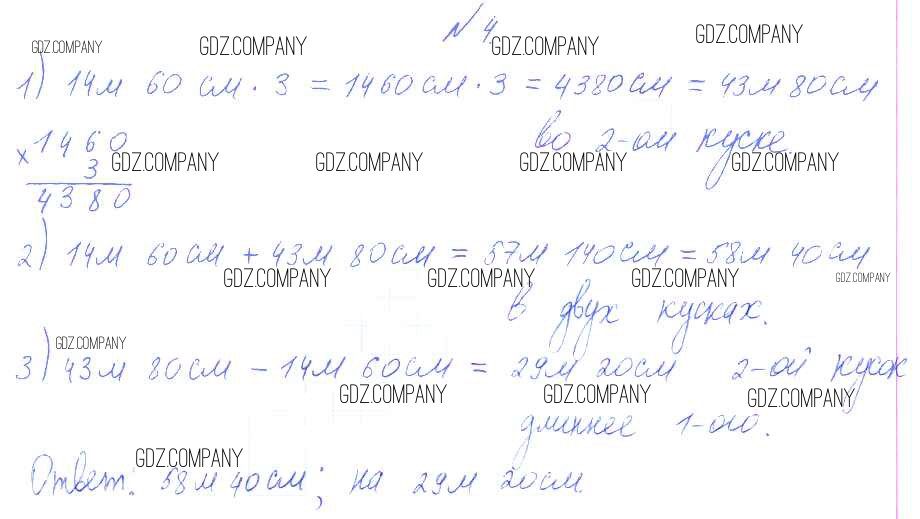 № 4.
GDZ.COMPANY GDZ.COMPANY GDZ.COMPANY GDZ.COMPANY
1) 14м 60 см · 3 = 1460см · 3 = 4380см = 43м 80см
во 2-ом куске
× 1460
3
4380
GDZ.COMPANY GDZ.COMPANY GDZ.COMPANY GDZ.COMPANY
2) 14м 60см + 43м 80см = 57м 140см = 58м 40см
GDZ.COMPANY GDZ.COMPANY GDZ.COMPANY GDZ.COMPANY
в двух кусках.
GDZ.COMPANY
3) 43м 80см – 14м 60см = 29м 20см 2-ой кусок
GDZ.COMPANY GDZ.COMPANY GDZ.COMPANY
длиннее 1-ого.
GDZ.COMPANY
Ответ: 58м 40см; на 29м 20см.